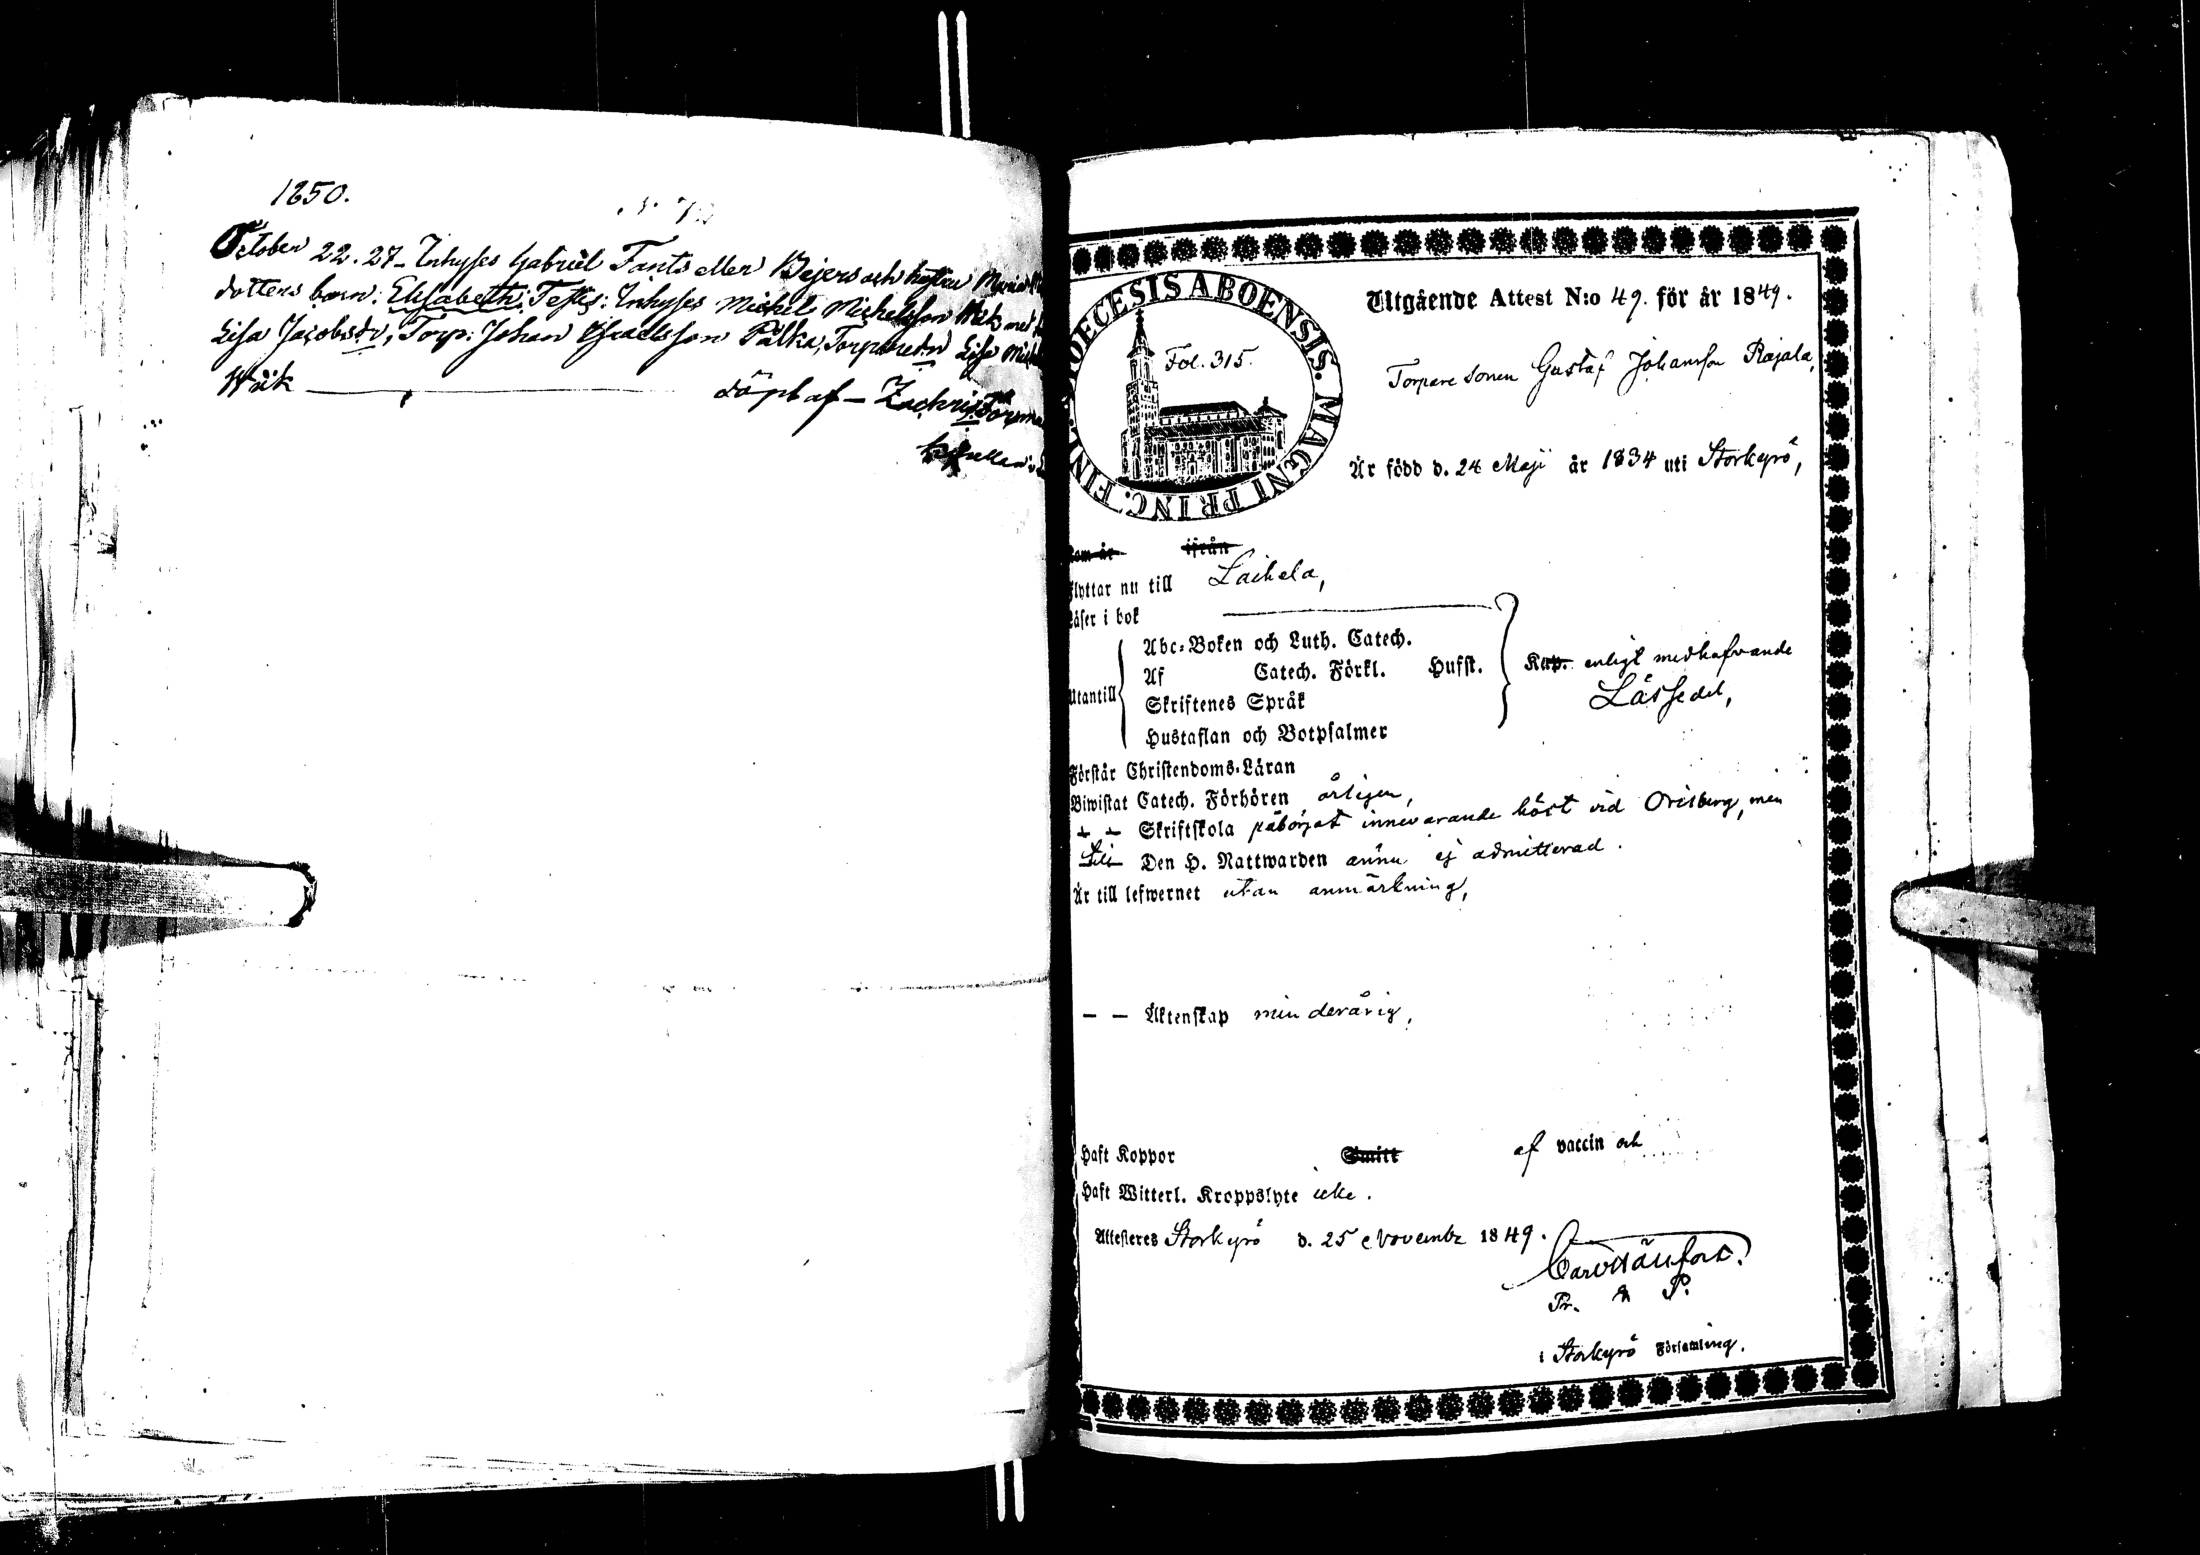 1850.
October 22. 27 - Inhyses Gabriel Fants eller Bejers och hustru Maria
dotters barn: Elisabeth; Testes: Inhyses Mickel Michelsson Wäk med
Lisa Jacobsdr, Torp: Johan Israelsson Pälka, Lisa
Wäk döpt af - Zachris
Utgående Attest N:o 49. för år 1849.
DIOECESIS ABOENSIS. MAGNI PRINC. FINL.
Fol. 315.
Torpare sonen Gustaf Johansson Rajala,
Är född d. 24 Maji år 1834 uti Storkyro,
Som är ifrån
Flyttar nu till Laihela,
Läser i bok
Utantill
Abc-Boken och Luth. Catech.
Af Catech. Förkl. Husst.
Skriftenes Språk
Hustaflan och Botpsalmer
Kap. enligt medhafvande
Lässedel,
Förstår Christendoms-Läran
Biwistat Catech. Förhören årligen,
— — Skriftskola påbörjat innevarande höst vid Orisberg, men
till Den H. Nattwarden ännu ej admitterad.
Är till lefwernet utan anmärkning,
— — Äktenskap minderårig,
Haft Koppor Smitt af vaccin och
Haft Witterl. Kroppslyte icke.
Attesteres Storkyro d. 25 Novembr 1849.
Pr. & P.
i Storkyro Församling.